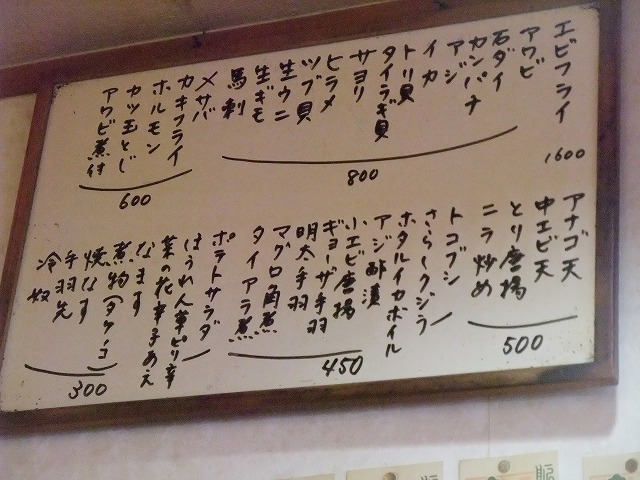 エビフライ
1600
アワビ
石ダイ
カンパチ
アジ
イカ
トリ貝
タイラギ貝
サヨリ
ヒラメ
ツブ貝
生ウニ
生ギモ
馬刺
800
〆サバ
カキフライ
ホルモン
カツ玉とじ
アワビ煮付
600
アナゴ天
中エビ天
とり唐揚
ニラ炒め
500
トコブシ
さらしクジラ
ホタルイカボイル
アジ酢漬
小エビ唐揚
ギョーザ手羽
明太手羽
マグロ角煮
タイアラ煮
450
ポテトサラダ
ほうれん草ピリ辛
菜の花辛子あえ
なます
煮物(タケノコ)
焼なす
手羽先
冷奴
300